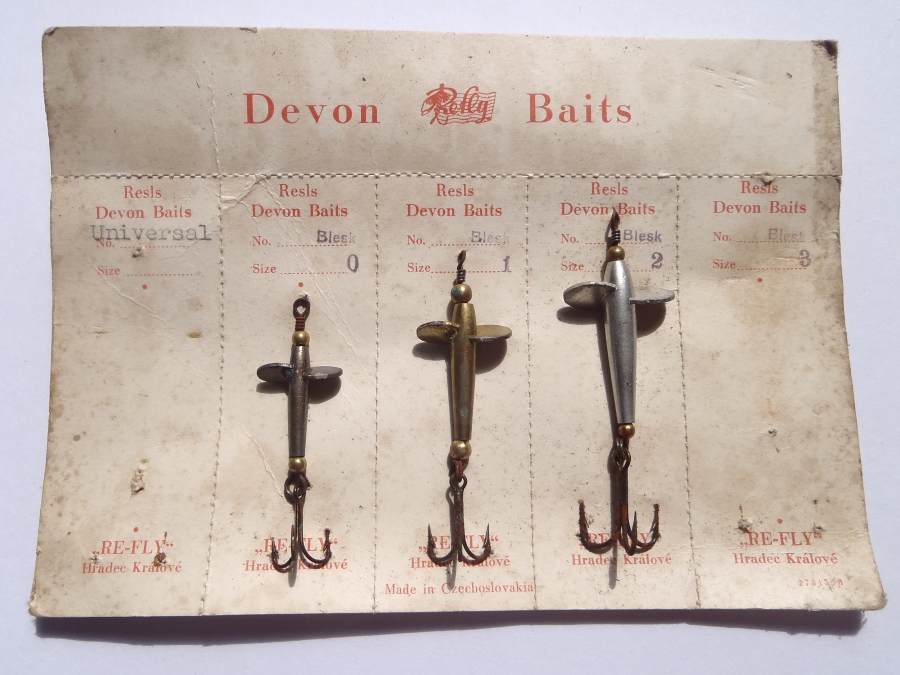 Devon Refly Baits
Resls
Devon Baits
Universal
No.
Size
„RE-FLY“
Hradec Králové
Resls
Devon Baits
No. Blesk
Size 0
„RE-FLY“
Hradec Králové
Resls
Devon Baits
No. Blesk
Size 1
„RE-FLY“
Hradec Králové
Made in Czechoslovakia
Resls
Devon Baits
No. Blesk
Size 2
„RE-FLY“
Hradec Králové
Resls
Devon Baits
No. Blesk
Size 3
„RE-FLY“
Hradec Králové